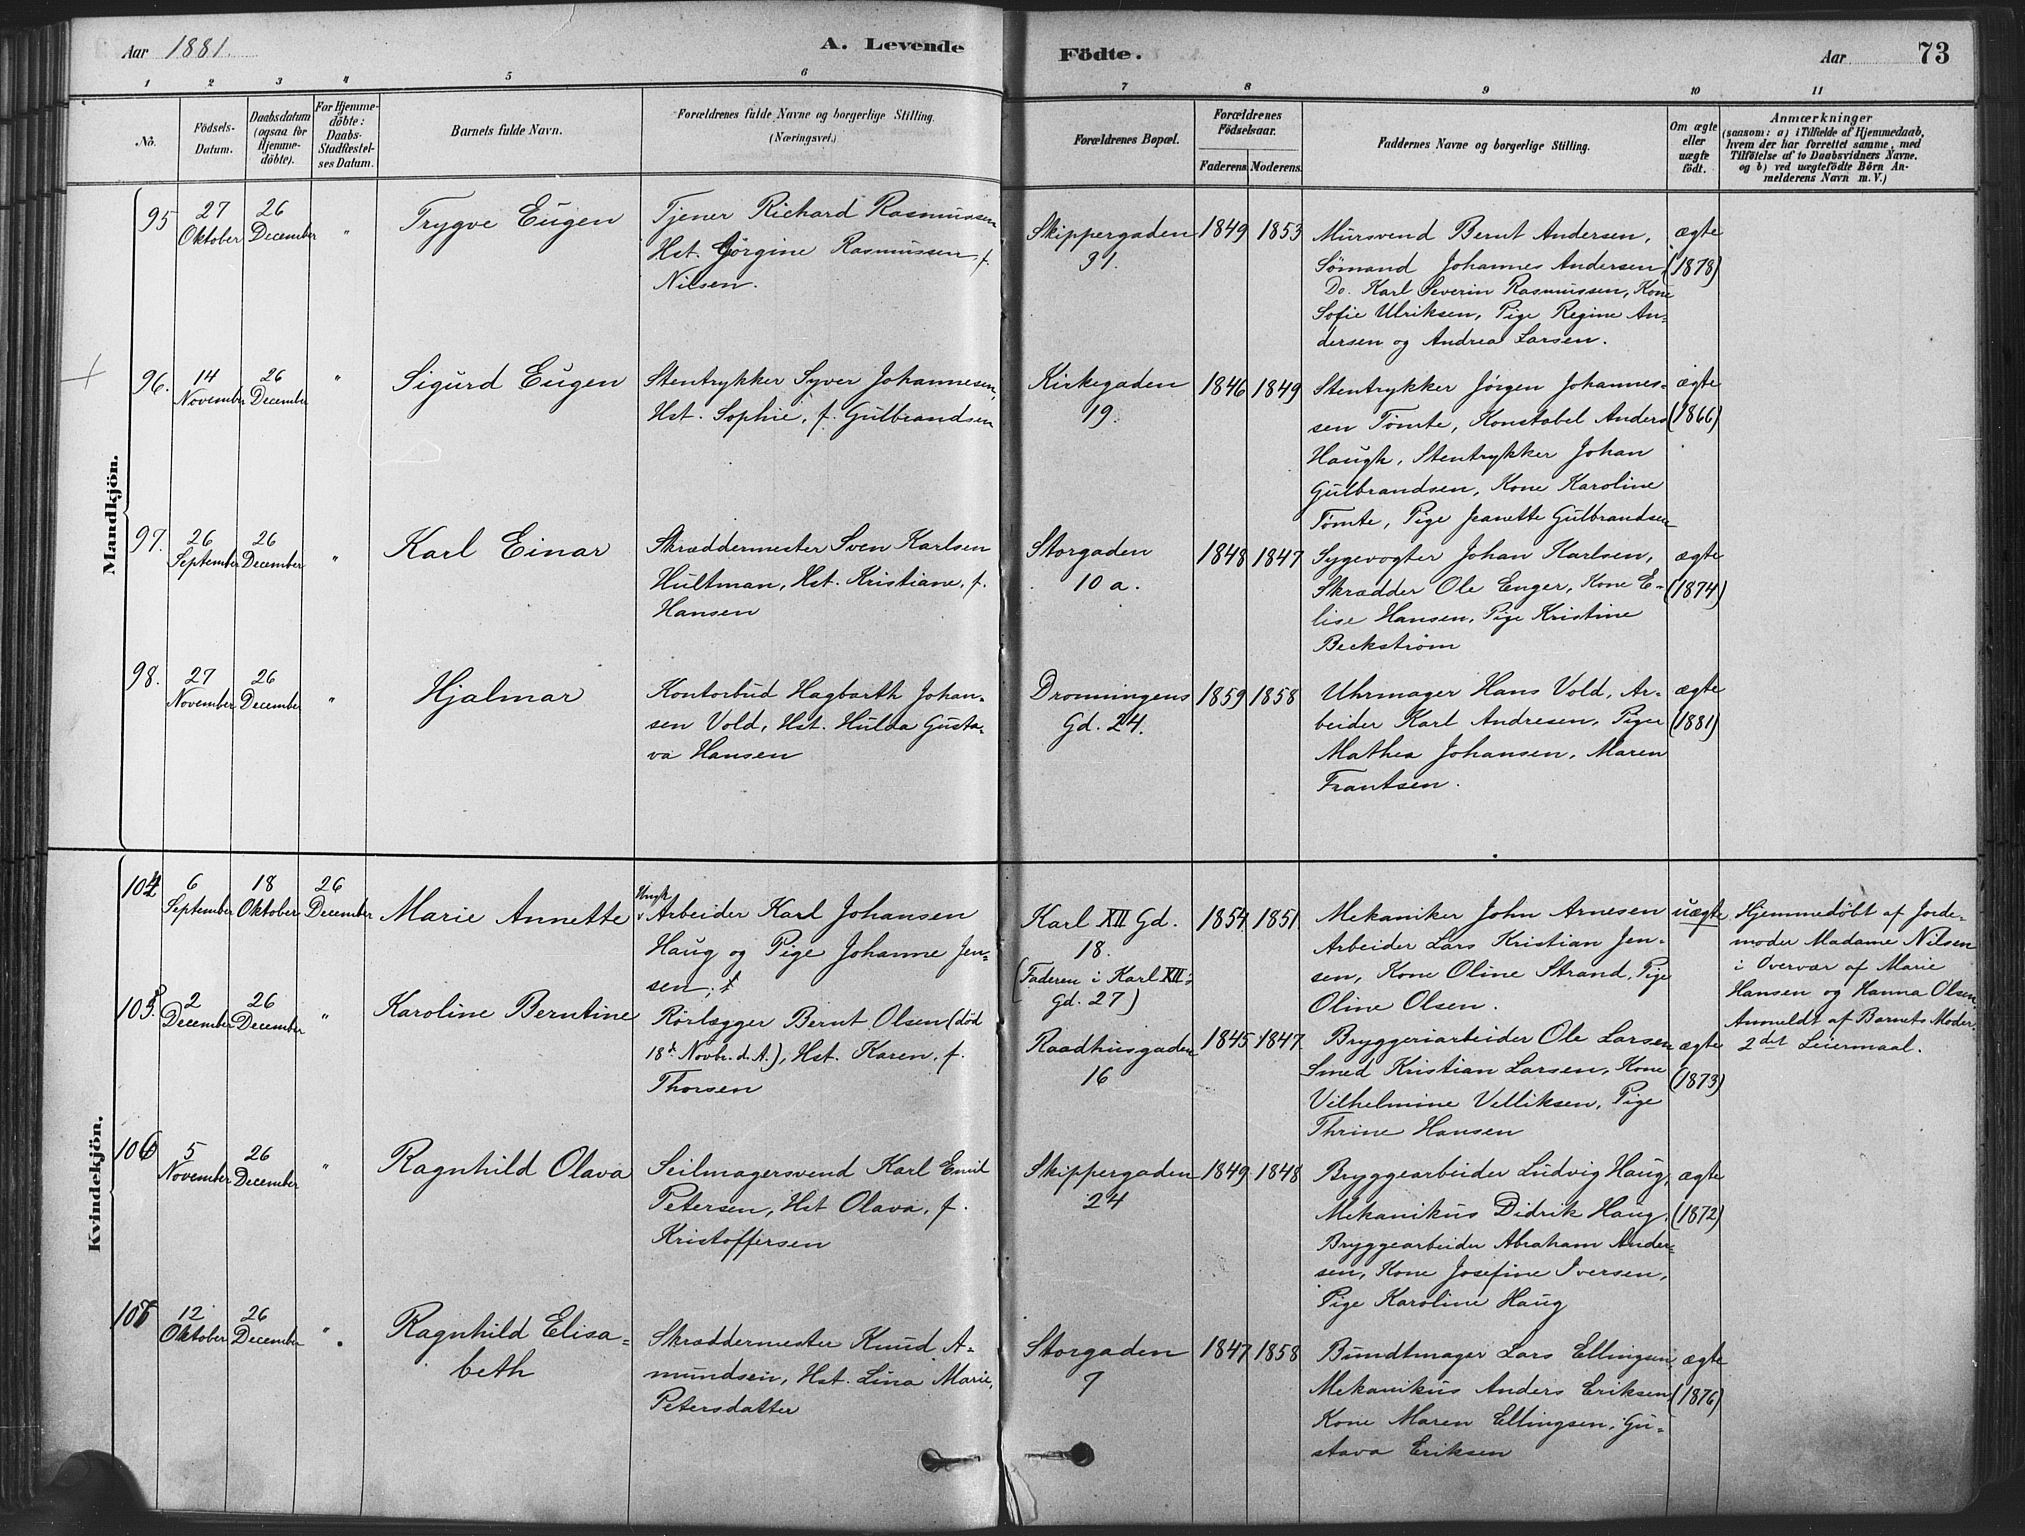 Aar 1881.
A. Levende Födte.
Aar 73
1 2 3 4 5 6 7 8 9 10 11
No.
Födsels-
Datum.
Daabsdatum
(ogsaa for
Hjemme-
döbte).
For Hjemme-
döbte:
Daabs-
Stadfæstel-
ses Datum.
Barnets fulde Navn.
Forældrenes fulde Navne og borgerlige Stilling.
(Næringsvei.)
Forældrenes Bopæl.
Forældrenes
Födselsaar.
Faderens. Moderens.
Faddernes Navne og borgerlige Stilling.
Om ægte
eller
uægte
födt.
Anmærkninger
(saasom: a) i Tilfælde af Hjemmedaab,
hvem der har forrettet samme, med
Tilföielse af to Daabsvidners Navne.
og b) ved uægtefödte Börn An-
melderens Navn m. V.)
Mandkjön.
95
27
Oktober
26
December
"
Trygve Eugen
Tjener Richard Rasmussen
Hst. Jörgine Rasmussen, f.
Nilsen.
Skippergaden
31.
1849 1853
Mursvend Bernt Andersen,
Sømand Johannes Andersen
Do. Karl Severin Rasmussen, Kone
Sofie Ulriksen, Pige Regine An-
dersen og Andrea Larsen.
ægte
(1878)
96.
14
November
26
December
"
Sigurd Eugen
Stentrykker Syver Johannesen,
Hst. Sophie, f. Gulbrandsen
Kirkegaden
19.
1846 1849
Stentrykker Jørgen Johannes-
sen Tømte, Konstabel Anders
Haugh, Stentrykker Johan
Gulbrandsen, Kone Karoline
Tømte, Pige Jeanette Gulbrandsen
ægte
(1866)
97.
26
September
26
December
"
Karl Einar
Skræddermester Sven Karlsen
Hultman, Hst. Kristiane, f.
Hansen
Storgaden
10 a.
1848 1847
Sygevogter Johan Karlsen,
Skrædder Ole Enger, Kone E-
lise Hansen, Pige Kristine
Beckstrøm
ægte
(1874)
98.
27
November
26
December
"
Hjalmar
Kontorbud Hagbarth Johan-
sen Vold, Hst. Hulda Gusta-
va Hansen
Dronningens
Gd. 24.
1859 1858
Uhrmager Hans Vold, Ar-
beider Karl Andresen, Piger
Mathea Johansen, Maren
Frantsen.
ægte
(1881)
Kvindekjön.
104
6
September
18
Oktober
26
December
Marie Annette
Ungk
Arbeider Karl Johansen
Haug og Pige Johanne Jen-
sen,
Karl XII Gd.
18.
(Faderen i Karl XII's
Gd. 27)
1854 1851
Mekaniker John Arnesen
Arbeider Lars Kristian Jen-
sen, Kone Oline Strand, Pige
Oline Olsen.
uægte
Hjemmedøbt af Jorde-
moder Madame Nilsen
i Overvær af Marie
Hansen og Hanna Olsen.
Anmeldt af Barnets Moder.
2det Leiermaal.
105.
2
December
26
December
"
Karoline Berntine
Rörlægger Bernt Olsen (död
18de Novbr. d. A.), Hst. Karen, f.
Thorsen
Raadhusgaden
16
1845 1847
Bryggeriarbeider Ole Larsen
Smed Kristian Larsen, Kone
Vilhelmine Velliksen, Pige
Thrine Hansen
ægte
(1873)
106
5
November
26
December
"
Ragnhild Olava
Seilmagersvend Karl Emil
Petersen, Hst Olava, f.
Kristoffersen
Skippergaden
24
1849 1848
Bryggearbeider Ludvig Haug,
Mekanikus Didrik Haug,
Bryggearbeider Abraham Ander-
sen, Kone Josefine Iversen,
Pige Karoline Haug
ægte
(1872)
107
12
Oktober
26
December
"
Ragnhild Elisa-
beth
Skræddermester Knud A-
mundsen, Hst. Lina Marie,
Petersdatter
Storgaden
7
1847 1858
Bundtmager Lars Ellingsen,
Mekanikus Anders Eriksen
Kone Maren Ellingsen, Gu-
stava Eriksen
ægte
(1876)